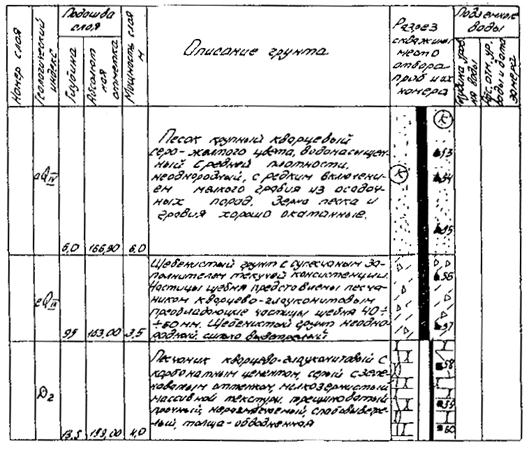 Номер слоя
Геологический индекс
Подошва слоя
Глубина
Абсолютная отметка
Мощность слоя м
Описание грунта
Разрез
скважины
место
отбора
проб и их
номера
Подземные
воды
aQIV
Песок крупный кварцевый
серо-желтого цвета, водонасыщен-
ный средней плотности,
неоднородный, с редким включени-
ем мелкого гравия из осадоч-
ных пород. Зерна песка и
гравия хорошо окатанные.
6,0 166,90 6,0
К
К
53
54
55
eQIV
Щебенистый грунт с супесчаным за-
полнителем текучей консистенции.
Частицы щебня представлены песча-
ником кварцево-глауконитовым
преобладающие частицы щебня 40÷
÷60 мм. Щебенистый грунт неодно-
родный, сильно
9,5 163,00 3,5
56
57
D2
Песчаник кварцево-глауконитовый с
карбонатным цементом, серый с зеле-
новатым оттенком, мелкозернистый
массивной текстуры, трещиноватый
прочный, неразмягчаемый, слабовыветре-
лый, толща - обводненная
13,5 159,00 4,0
58
59
60